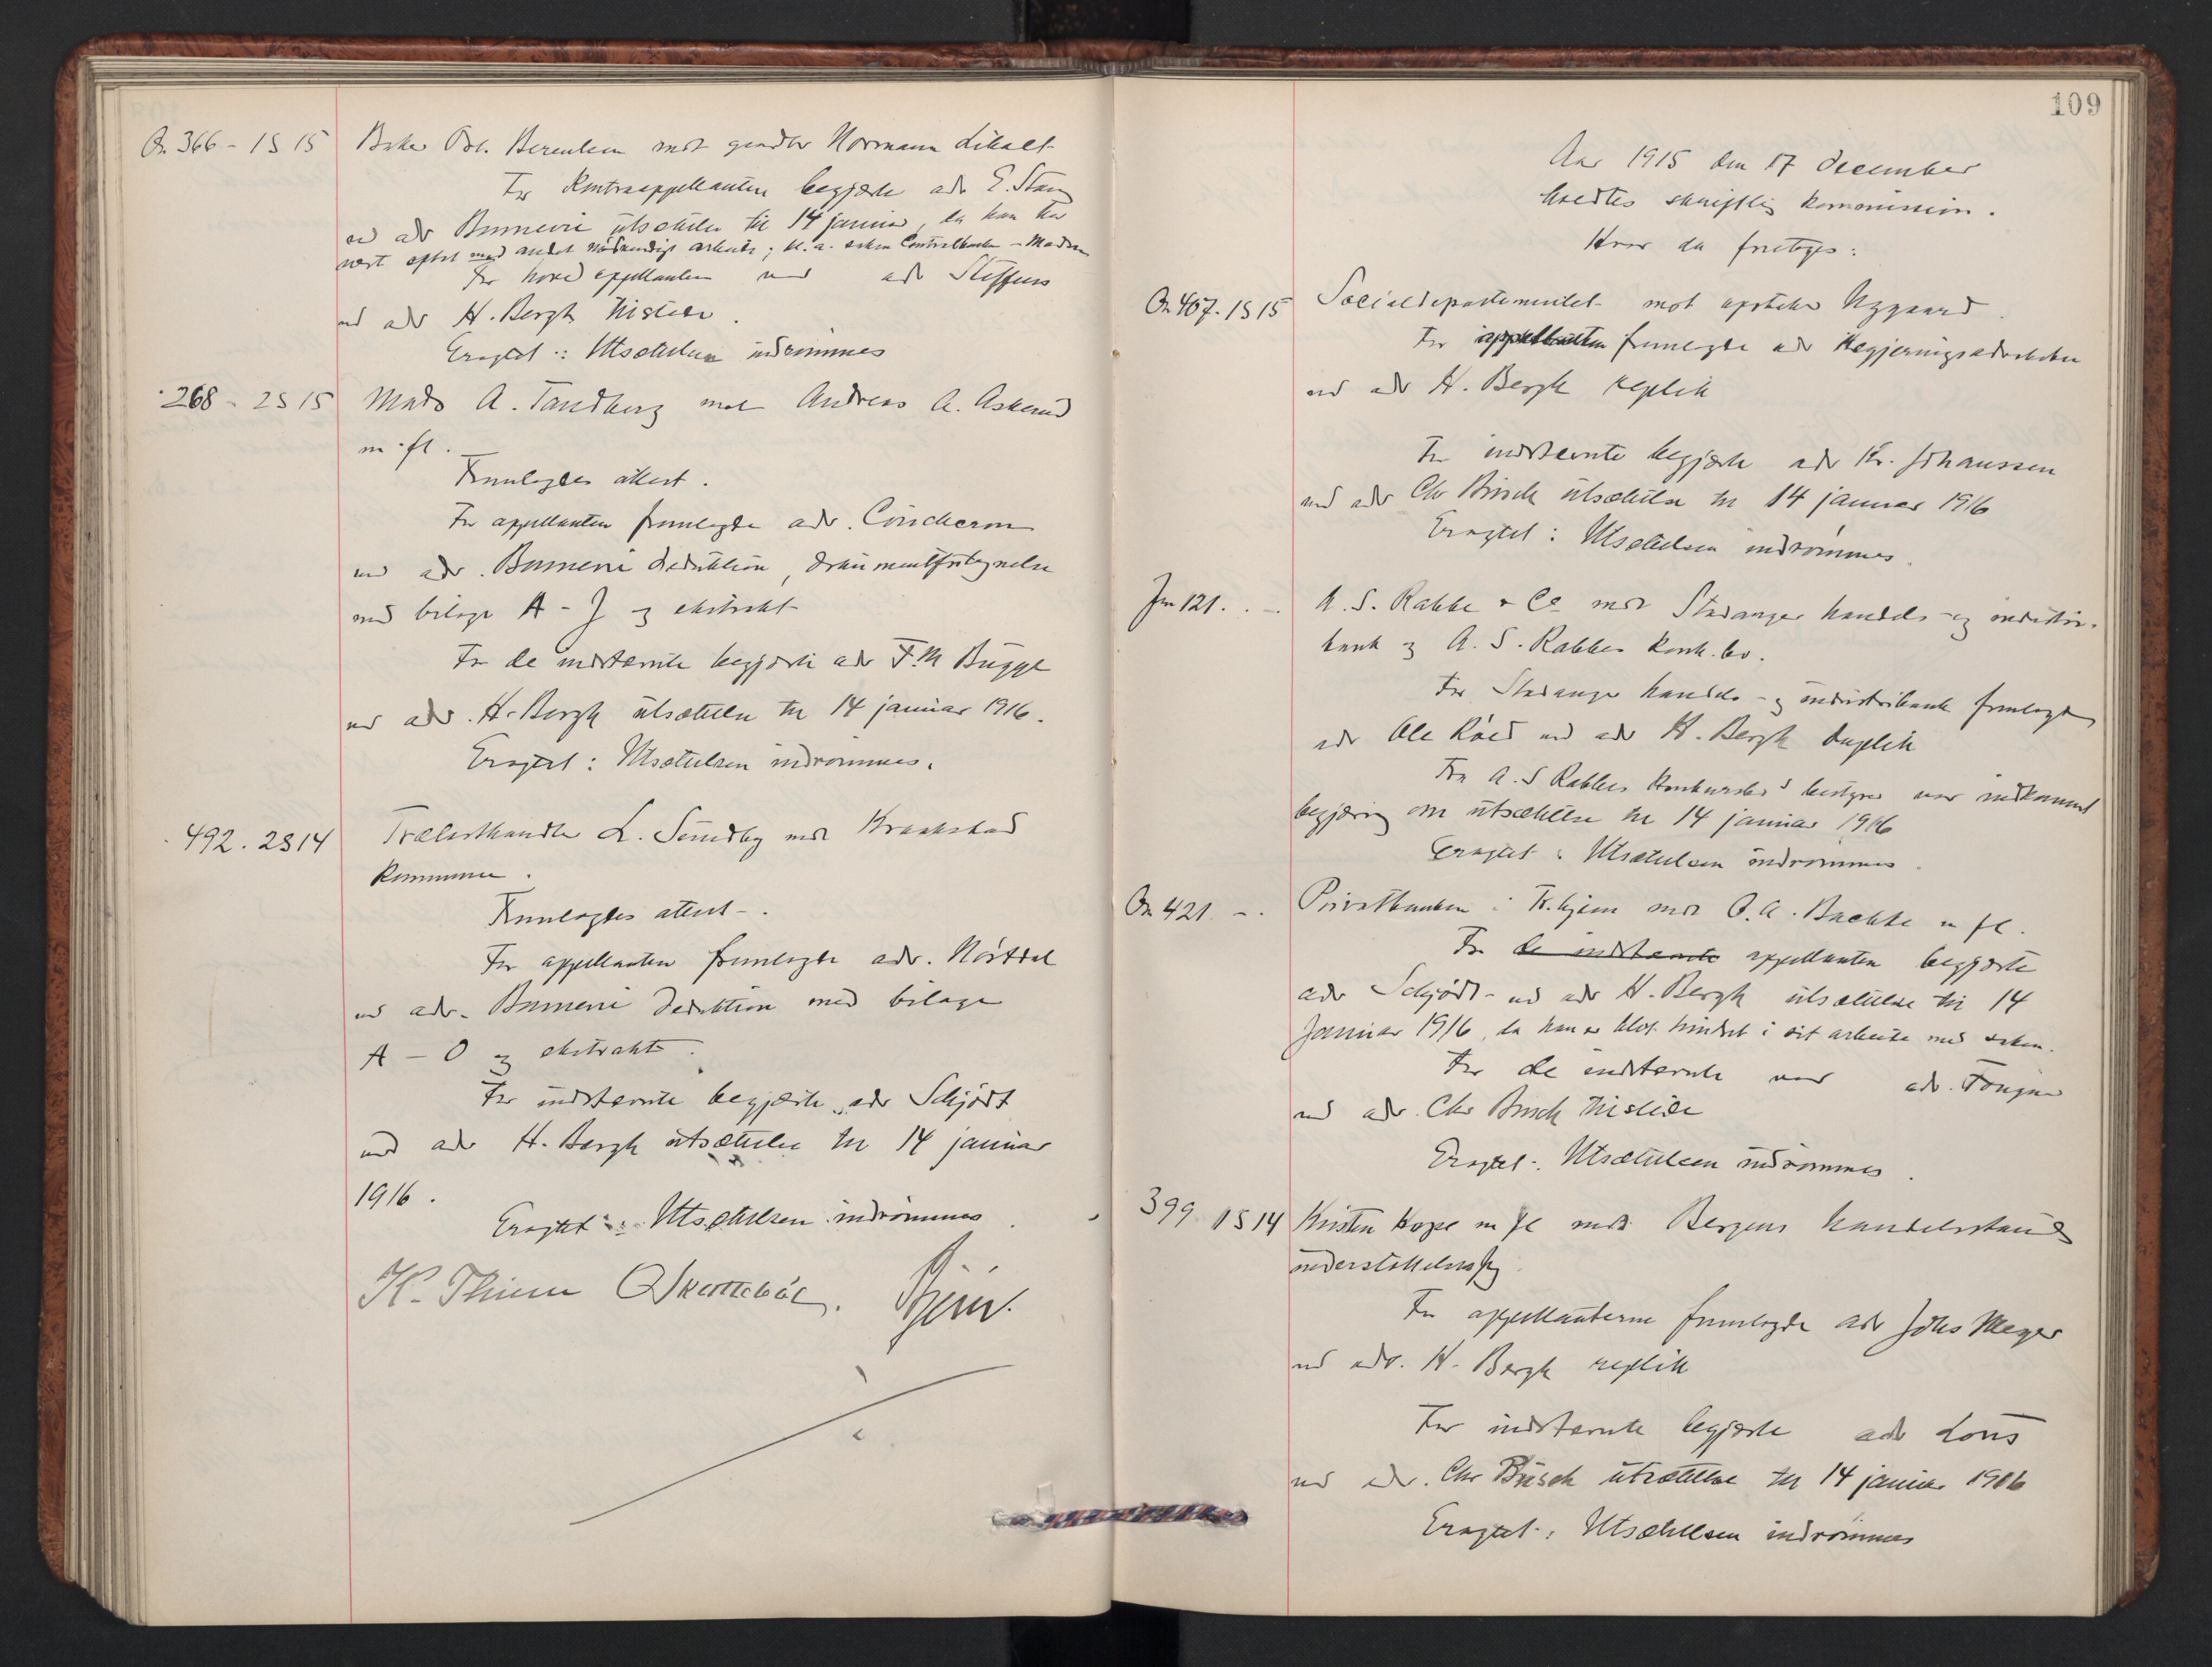 O. 366 - 1 S 15 Baker Osc. Berentsen mot gaardbr Normann Likaet
For Kontraappellanten begjærte adv E. Stang
ved adv Bumenri utsættelse til 14 januar, da han har
vært optat med andet nødvendigt arbeide; bl. a. saken
For hovedappellanten var adv Steffens
ved adv H. Bergh tilstede.
Eragtet: Utsættelsen indrömmes
268 - 2 S 15 Mads A. Tandberg mot Andreas A. Askerud
m fl.
Fremlagdes attest.
For appellanten fremlagde adv.
ved adv. Bumenri deduktion, dokumentfortegnelse
med bilage A - J og ekstrakt
For de indstevnte begjærte adv F. M Bugge
ved adv. H. Bergh utsættelse til 14 januar 1916.
Eragtet: Utsættelsen indrømmes.
492. 2 S 14 Trælasthandler L. Sundby mot Kraakstad
kommune.
Fremlagdes attest.
For appellanten fremlagde adv. Hörtdal
ved adv. Bumenri deduktion med bilage
A - O og ekstrakt.
For indstevnte begjærte adv Schjödt
ved adv H. Bergh utsættelse til 14 januar
1916.
Eragtet: Utsættelsen indrömmes.
K. Thinn
109
Aar 1915 den 17 december
holdtes skriftlig kommission.
Hvor da foretoges:
On 407. 1 S 15 Socialdepartementet mot apoteker Nygaard.
For appellanten fremlagde adv Regjeringsadvokaten
ved adv H. Bergh replik
For indstevnte begjærte adv Kr. Johanssen
ved adv Chr Busch utsættelse til 14 januar 1916
Eragtet: Utsættelsen indrömmes.
Jm 121. . - A. S. Rabbe & Co mot Stavanger handels - og industri-
bank og A. S. Rabbes konk. bo.
For Stavanger handels - og industribank fremlagde
adv Ole Röed ved adv H. Bergh duplik
Fra A. S Rabbes konkursbo's bestyrer var indkommet
begjæring om utsættelse til 14 januar 1916
Eragtet: Utsættelsen indrömmes.
On 421. - . Privatbanken i Tr.hjem mot O. A. Bachke m fl.
For de indstevnte appellanten begjærte
adv Schjödt ved adv H. Bergh utsættelse til 14
Januar 1916, da han er blit hindret i sit arbeide med saken.
For de indstevnte var adv. Fougner
ved adv. Chr Busch tilstede
Eragtet: Utsættelsen indrömmes.
399 1 S 14 Kristen Kope m fl mot Bergens handelsstands
understöttelsesfg.
For appellanterne fremlagde adv Johs Meyer
ved adv. H. Bergh replik
For indstevnte begjærte adv Lous
ved adv. Chr Busch utsættelse til 14 januar 1916
Eragtet: Utsættelsen indrömmes